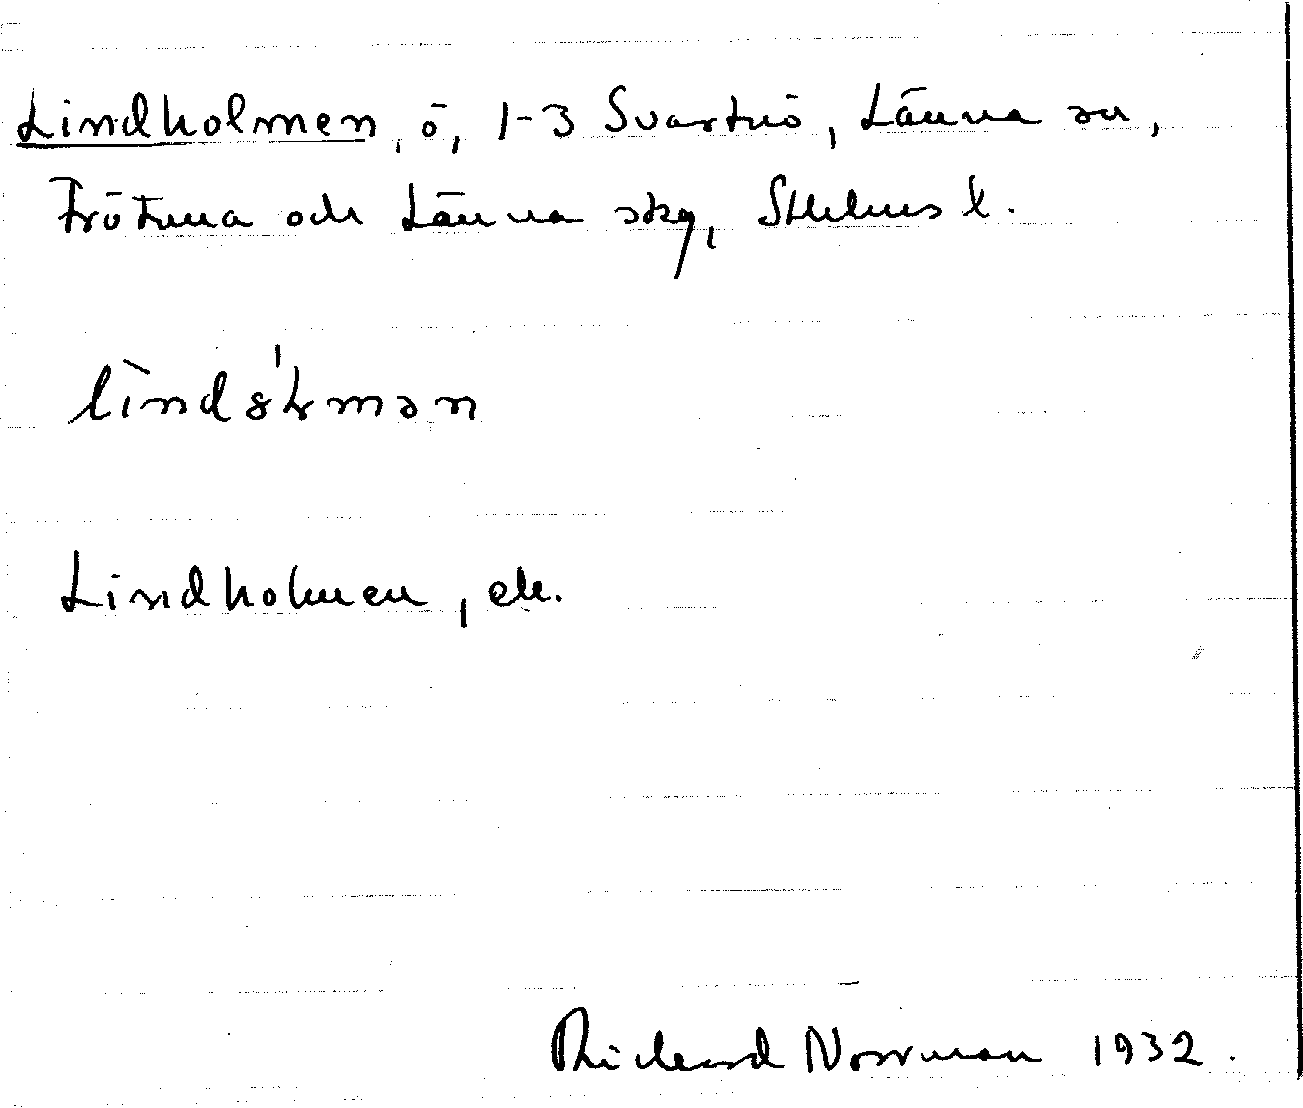 Lindholmen, ö, 1-3 Svartnö, Länna sn,
Frötuna och Länna skg, Sthlms l.
Lindholmen, ek.
Rickard Norrman 1932.